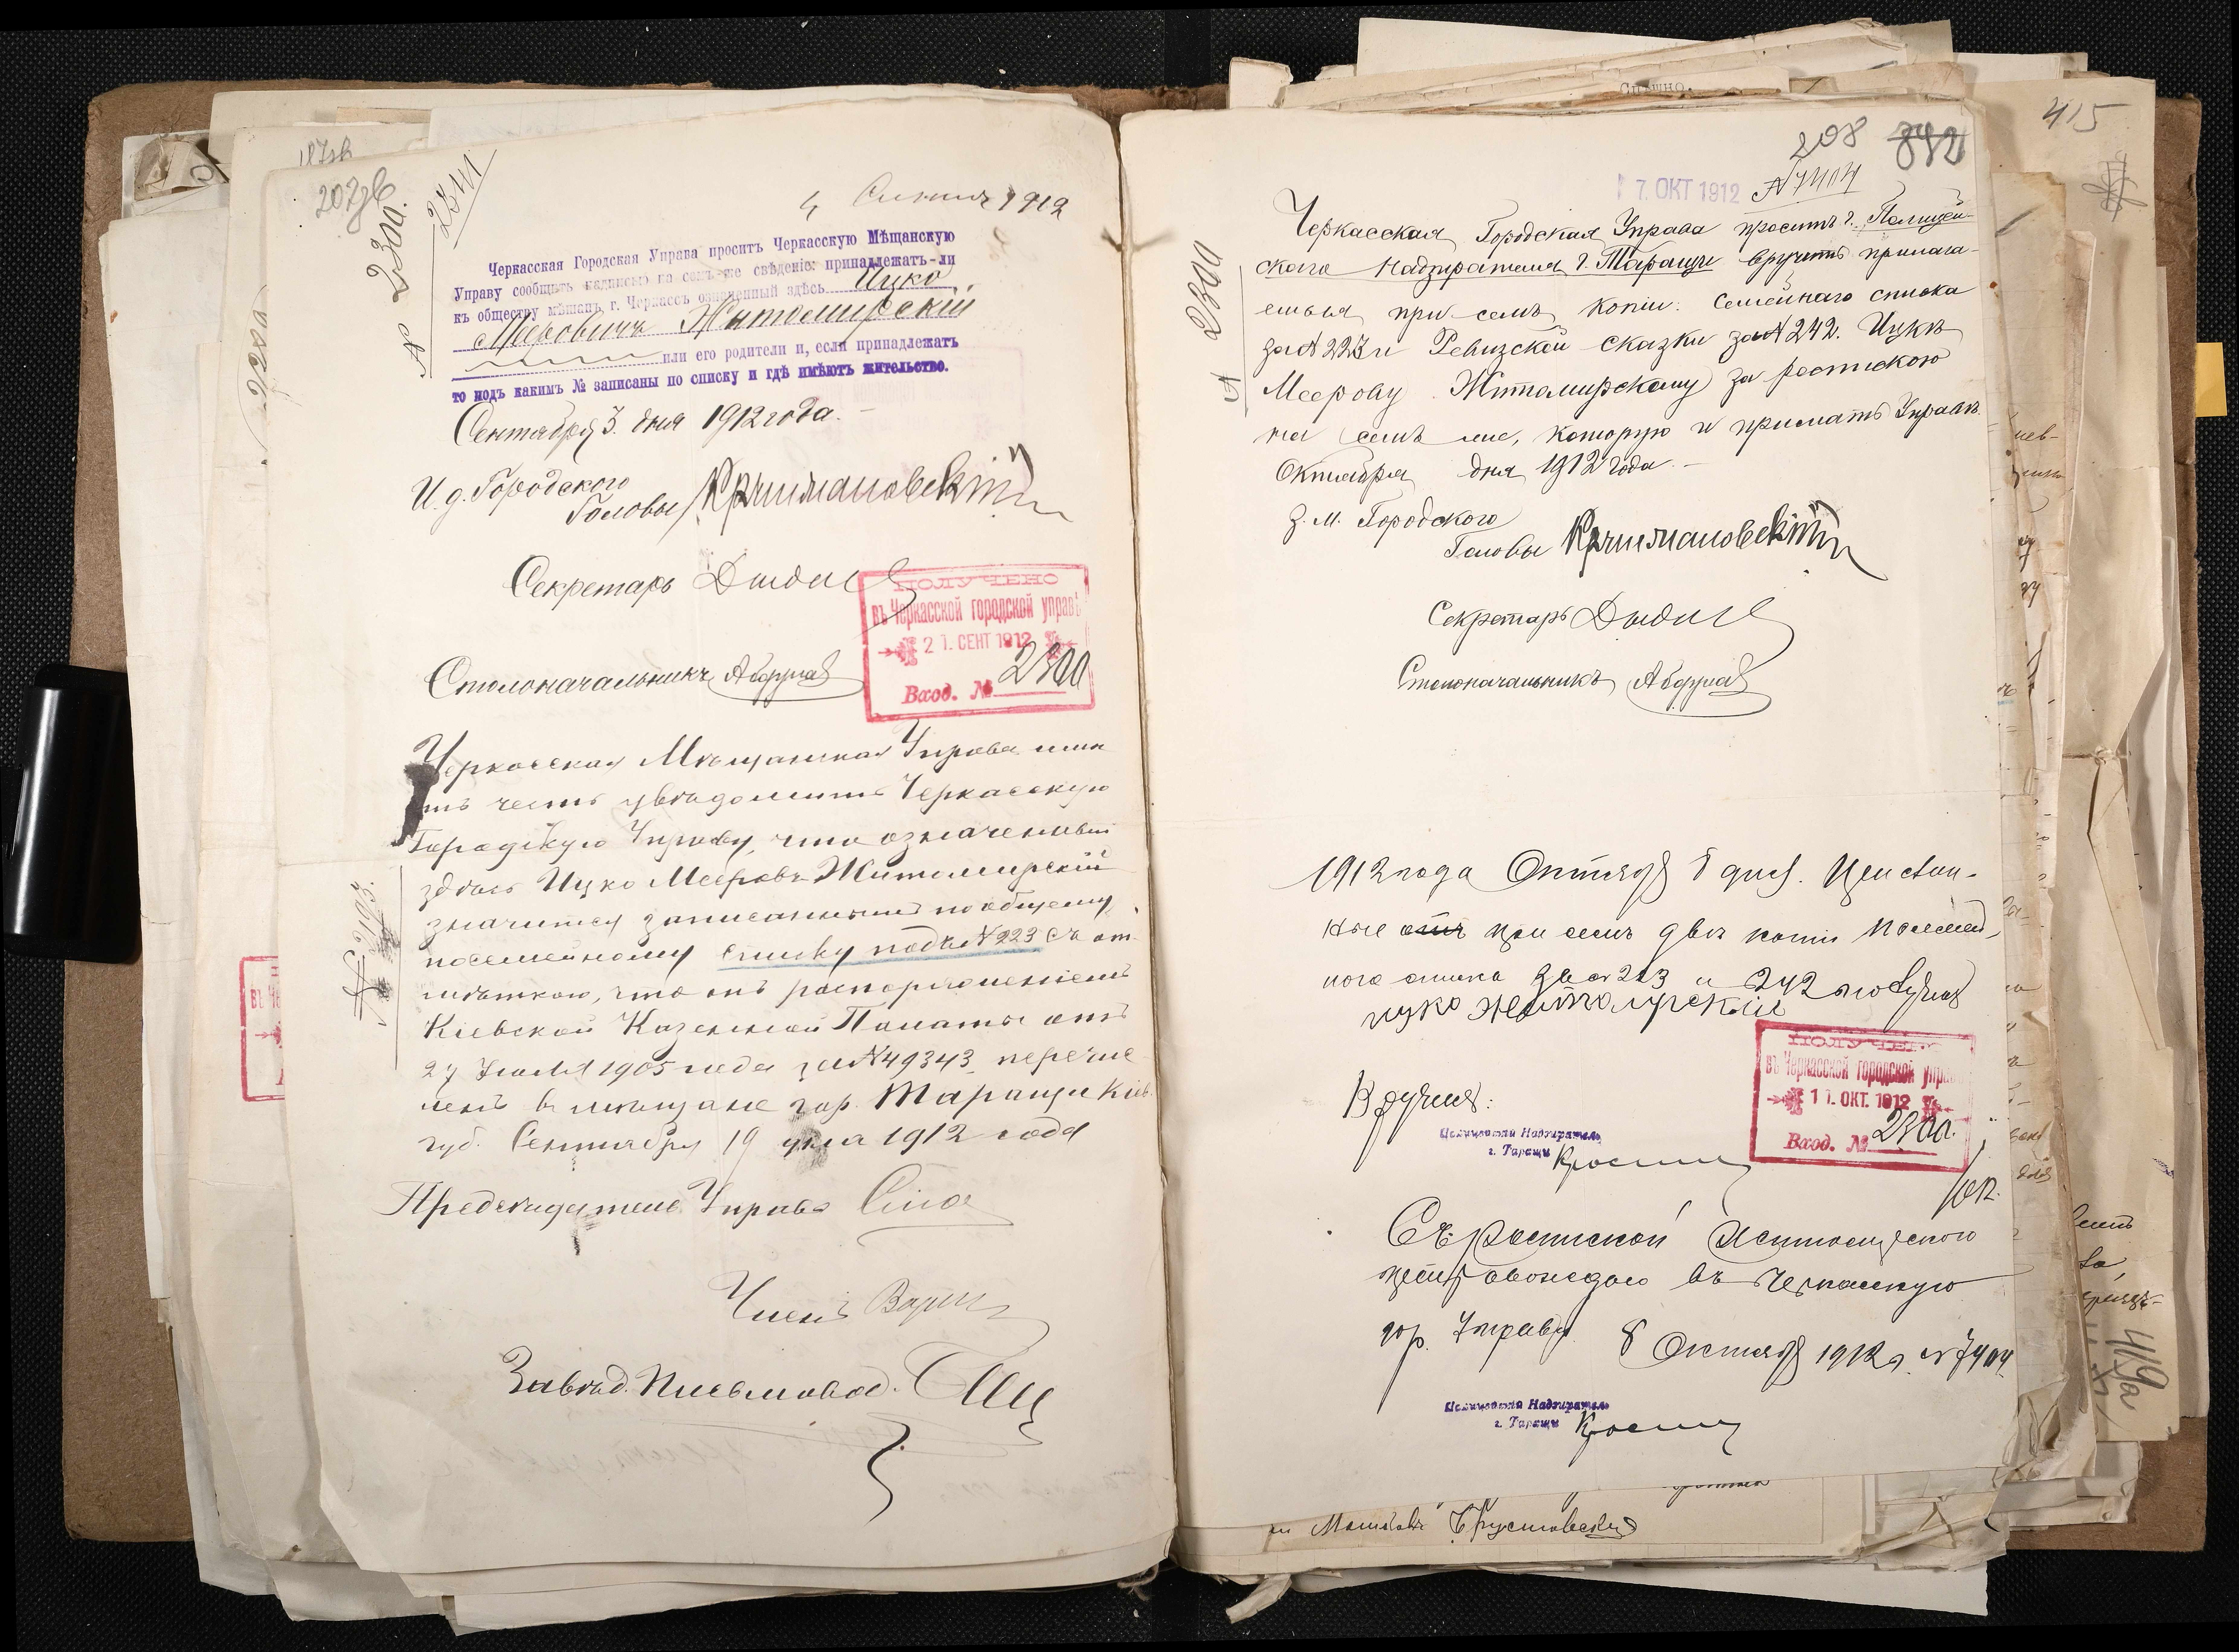 187зв
207зв
№ 2300.
2341
4 Сентября 1912
Черкасская Городская Управа проситъ Черкасскую Мѣщанскую
Управу сообщить надписью на семъ-же свѣденіе: принадлежатъ-ли
къ обществу мѣщанъ, г. Черкассъ означенный здѣсь Ицко
Меровичъ Житомирскій
или его родители и, если принадлежатъ
то подъ какимъ № записаны по списку и гдѣ имѣютъ жительство.
Сентября 3 дня 1912 года.
И. д. Городского
Головы Кришмановскій
Секретарь
ПОЛУЧЕНО
въ Черкасской городской управѣ
21. СЕНТ 1912
Вход. № 2300
Столоначальникъ
Черкасская Мѣщанская Управа имѣ
етъ честь увѣдомить Черкасскую
Городскую Управу, что означенный
здѣсь Ицко Мееровъ Житомирскій
значится записаннымъ по общему
посемейному списку подъ № 223 съ от
мѣткою, что онъ распоряженіемъ
Кіевской Казенной Палаты отъ
27 Іюля 1905 года за № 49343 перечис
ленъ въ мѣщане гор. Таращи Кіев.
губ. Сентября 19 дня 1912 года
№ 2193.
Предсѣдатель Управы
Членъ
Завѣд. Письмовод.
415
208
842
7. ОКТ 1912 № 7404
№ 2300
Черкасская Городская Управа проситъ г. Полицей-
скаго Надзирателя г. Таращи вручить прилага-
емыя при семъ копіи: Семейнаго списка
за № 223 и Ревизской сказки за № 242. Ицкѣ
Меерову Житомирскому за роспискою
на семъ же, которую и прислать Управѣ.
Октября дня 1912 года.
З. м. Городского
Головы Кришмановскій
Секретарь
Столоначальникъ
1912 года Октября 8 дня. Прислан-
ные при семъ двѣ копіи посемей
наго списка за № 223 и 242 получилъ
ицко Житомирскій
Вручилъ:
Полицейскій Надзиратель
г. Таращи
ПОЛУЧЕНО
въ Черкасской городской управѣ
11. ОКТ. 1912
Вход. № 2300.
Съ роспиской Житомирскаго
препровождаю въ Черкасскую
гор. Управу. 8 Октября 1912 г. № 7404
Полицейскій Надзиратель
г. Таращи
419